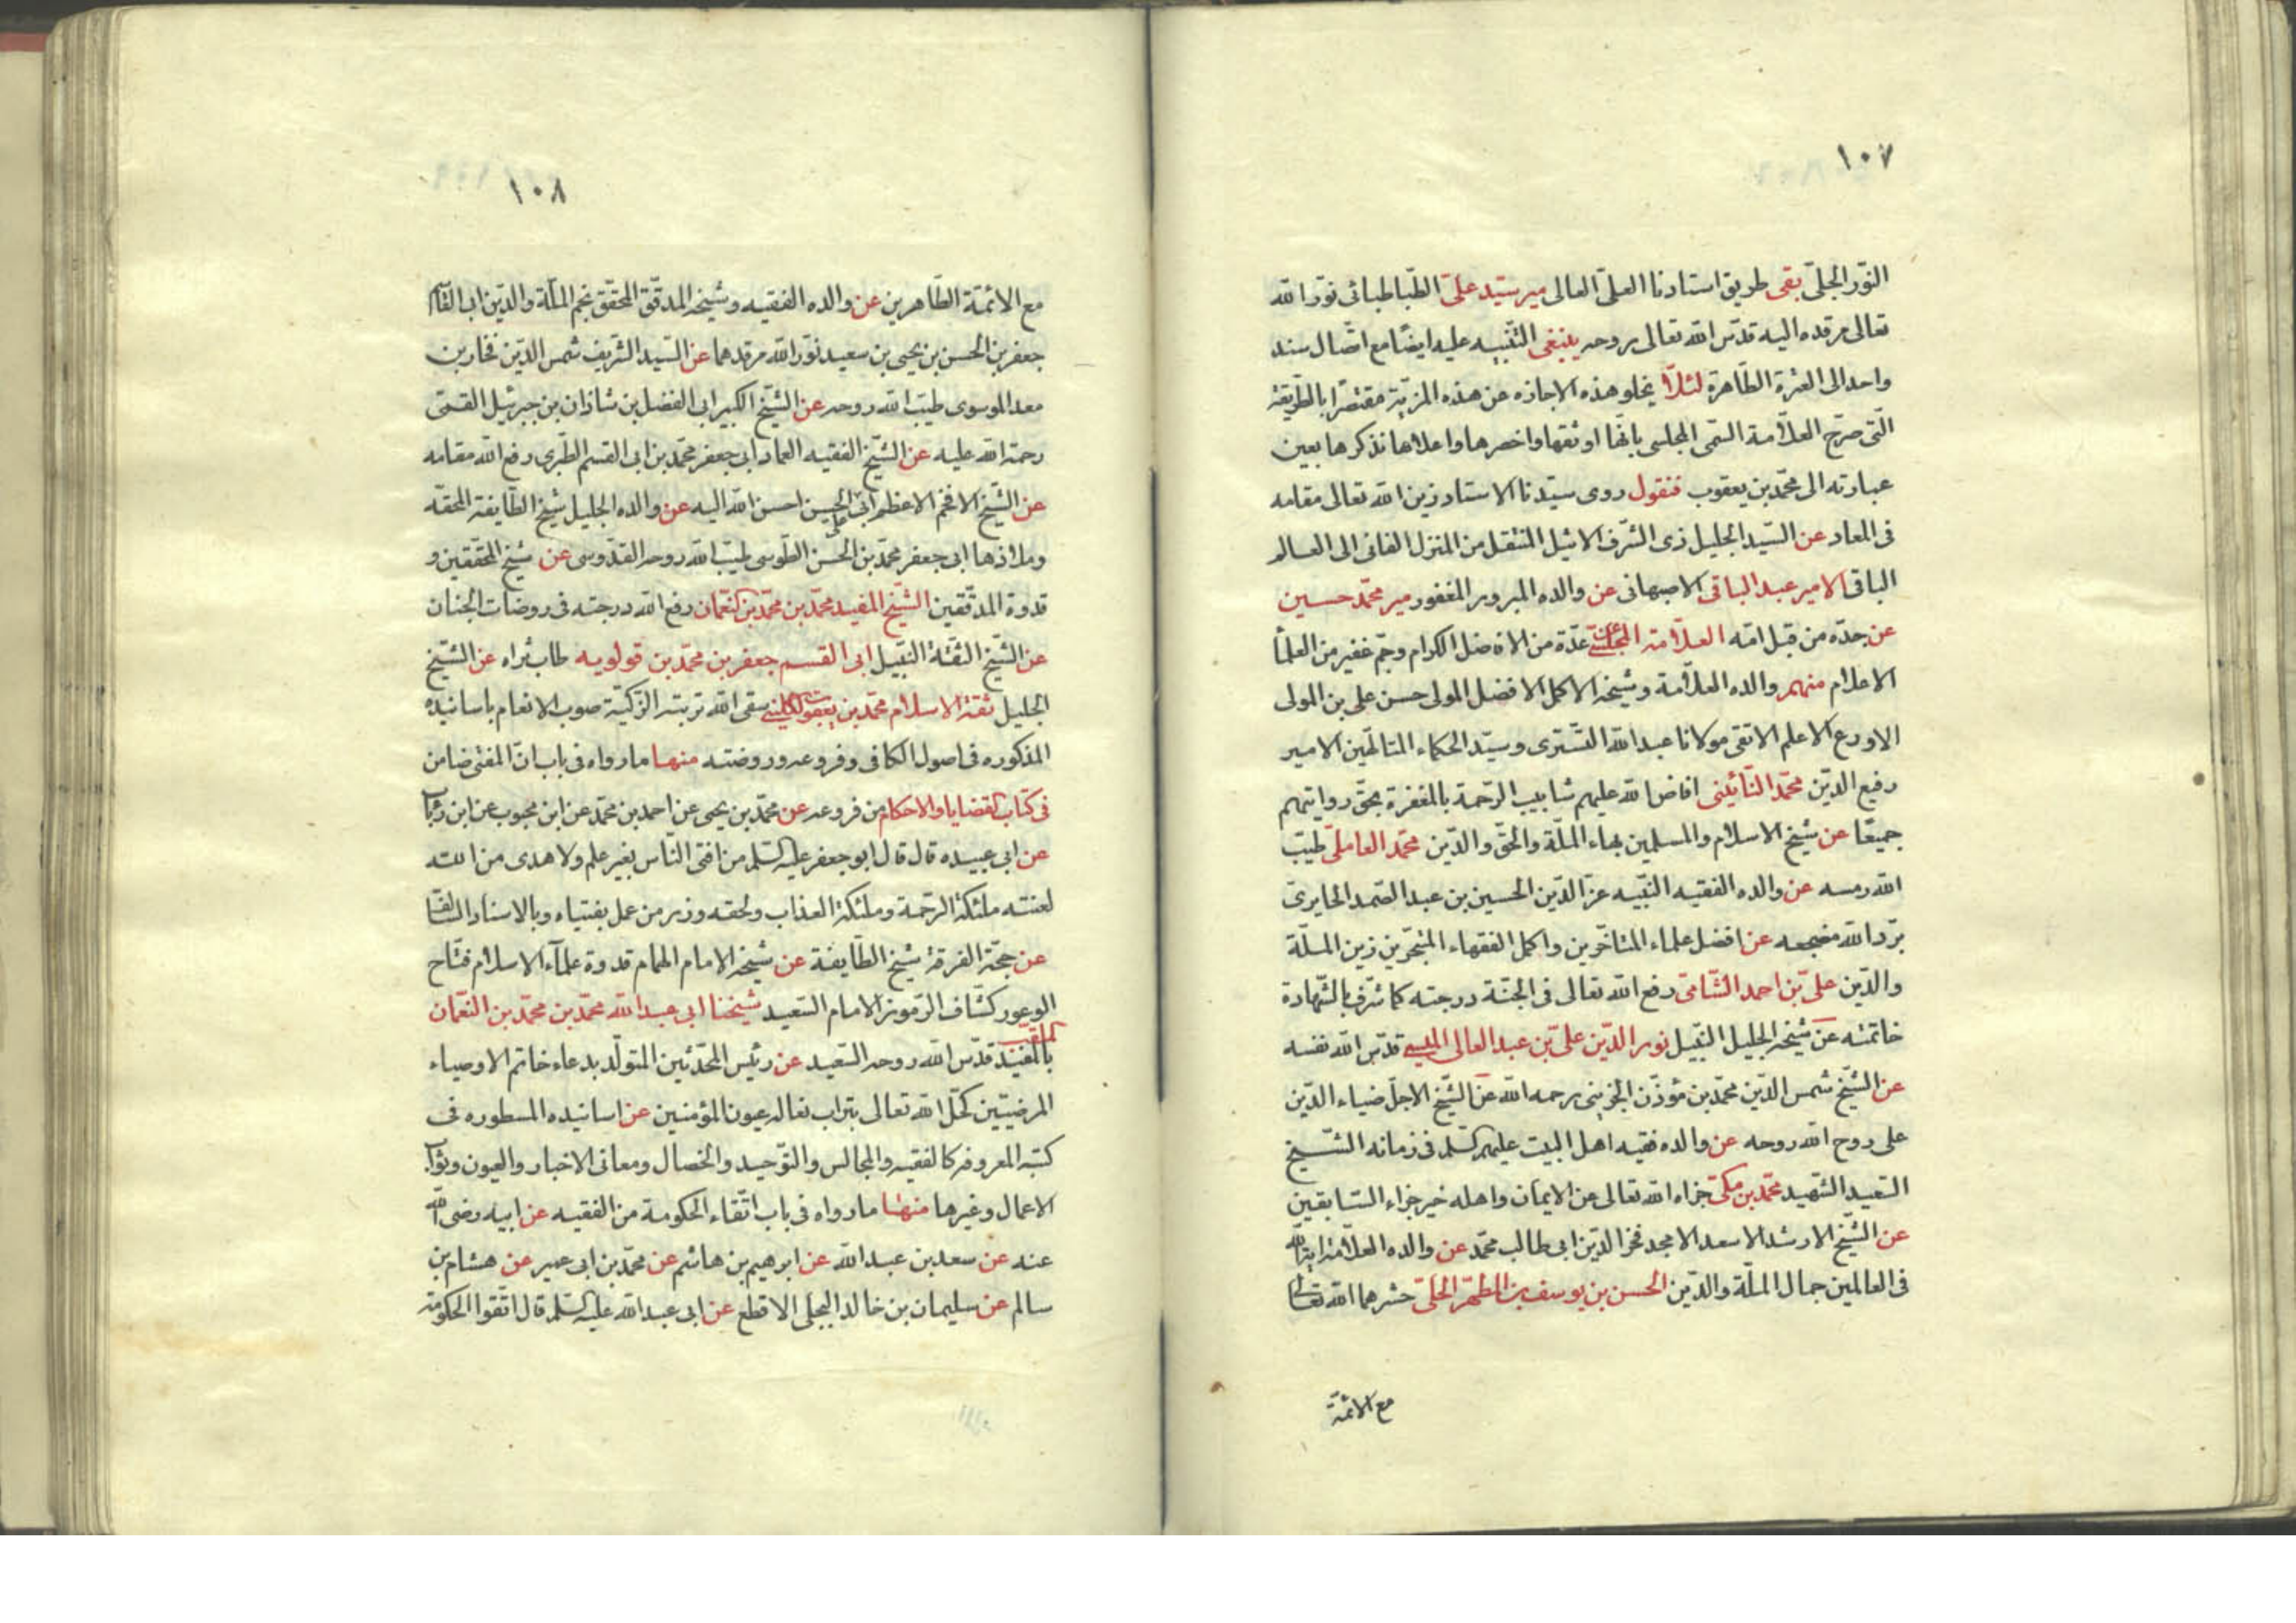 ١٠٧
النّور الجلىّ بقى طريق استادنا العلىّ العالى مير سيّد علىّ الطّباطبائى نوّر الله
تعالى مرقده اليه قدّس الله تعالى بروحه ينبغى التّنبيه عليه ايضًا مع اتصال سند
واحد الى العترة الطّاهرة لئلّا يخلو هذه الاجازه عن هذه المزيّة مقتصرًا بالطّريقة
الّتى صرّح العلّامة السّمى المجلسى بانّها اوثقها واخصرها واعلاها نذكرها بعين
عبارته الى محمّد بن يعقوب فنقول روى سيّدنا الاستاد زين الله تعالى مقامه
فى المعاد عن السّيد الجليل ذى الشّرف الاثيل المنتقل من المنزل الفانى الى العالم
الباقى الامير عبد الباقى الاصبهانى عن والده المبرور المغفور مير محمّد حسين
عن جدّه من قبل امّه العلّامة المجلسىّ عن عدّة من الافاضل الكرام وجمّ غفير من العلمآ
الاعلام منهم والده العلّامة وشيخه الاكمل الافضل المولى حسن على بن المولى
الاورع الاعلم الاتقى مولانا عبد الله التّسترى وسيّد الحكماء المتالّهين الامير
رفيع الدّين محمّد النّائينى افاض الله عليهم شابيب الرّحمة بالمغفرة بحقّ روايتهم
جميعًا عن شيخ الاسلام والمسلمين بهاء الملّة والحقّ والدّين محمّد العاملىّ طيّب
الله رمسه عن والده الفقيه النّبيه عزّ الدّين الحسين بن عبد الصّمد الحايرىّ
برّد الله مضجعه عن افضل علماء المتاخّرين واكمل الفقهاء المتبحّرين زين الملّة
والدّين علىّ بن احمد الشّامى رفع الله تعالى فى الجنّة درجته كما شرّف بالشّهادة
خاتمته عن شيخه الجليل النّبيل نور الدّين علىّ بن عبد العالى الميسىّ قدّس الله نفسه
عن الشّيخ شمس الدّين محمّد بن مؤذّن الجزينى رحمه الله عن الشّيخ الاجلّ ضياء الدّين
على روح الله روحه عن والده فقيه اهل البيت عليهم السّلم فى زمانه الشّيخ
السّعيد الشّهيد محمّد بن مكىّ جزاه الله تعالى عن الايمان واهله خير جزاء السّابقين
عن الشّيخ الارشد الاسعد الامجد فخر الدّين ابى طالب محمّد عن والده العلّامة اية الله
فى العالمين جمال الملّة والدّين الحسن بن يوسف بن المطهّر الحلىّ حشرهما الله تعالى
مع الائمّة
١٠٨
مع الائمّة الطّاهرين عن والده الفقيه وشيخه المدقّق المحقّق نجم الملّة والدّين ابى القاسم
جعفر بن الحسن بن يحيى بن سعيد نوّر الله مرقدهما عن السّيد الشّريف شمس الدّين فخار بن
معد الموسوى طيّب الله روحه عن الشّيخ الكبير ابى الفضل بن شاذان بن جبرئيل القمّى
رحمة الله عليه عن الشّيخ الفقيه العماد ابى جعفر محمّد بن ابى القسم الطّبرى رفع الله مقامه
عن الشّيخ الافخم الاعظم ابى علىّ الحسن احسن الله اليه عن والده الجليل شيخ الطّايفة المحقّه
وملاذها ابى جعفر محمّد بن الحسن الطّوسى طيّب الله روحه القدّوسى عن شيخ المحقّقين و
قدوة المدقّقين الشّيخ المفيد محمّد بن محمّد بن النّعمان رفع الله درجته فى روضات الجنان
عن الشّيخ الثّقة النّبيل ابى القسم جعفر بن محمّد بن قولويه طاب ثراه عن الشّيخ
الجليل ثقة الاسلام محمّد بن يعقوب الكلينى سقى الله تربته الزّكيّة صوب الانعام باسانيده
المذكوره فى اصول الكافى وفروعه وروضته منها ما رواه فى باب انّ المفتى ضامن
فى كتاب القضايا والاحكام من فروعه عن محمّد بن يحيى عن احمد بن محمّد عن ابن محبوب عن ابن رئاب
عن ابى عبيده قال قال ابو جعفر عليه السّلم من افتى النّاس بغير علم ولا هدى من الله
لعنته ملئكة الرّحمة وملئكة العذاب ولحقه وزر من عمل بفتياه وبالاسناد السّالف
عن حجّة الفرقة شيخ الطّايفة عن شيخه الامام الهمام قدوة علمآء الاسلام فتّاح
الوعور كشّاف الرّموز الامام السّعيد شيخنا ابى عبد الله محمّد بن محمّد بن النّعمان
الملقّب بالمفيد قدّس الله روحه السّعيد عن رئيس المحدّثين المتولّد بدعاء خاتم الاوصياء
المرضيّين كحّل الله تعالى بتراب نعاله عيون المؤمنين عن اسانيده المسطوره فى
كتبه المعروفه كالفقيه والمجالس والتّوحيد والخصال ومعانى الاخبار والعيون وثواب
الاعمال وغيرها منها ما رواه فى باب اتّقاء الحكومة من الفقيه عن ابيه رضى الله
عنه عن سعد بن عبد الله عن ابرهيم بن هاشم عن محمّد بن ابى عمير عن هشام بن
سالم عن سليمان بن خالد البجلى الاقطع عن ابى عبد الله عليه السّلم قال اتّقوا الحكومة